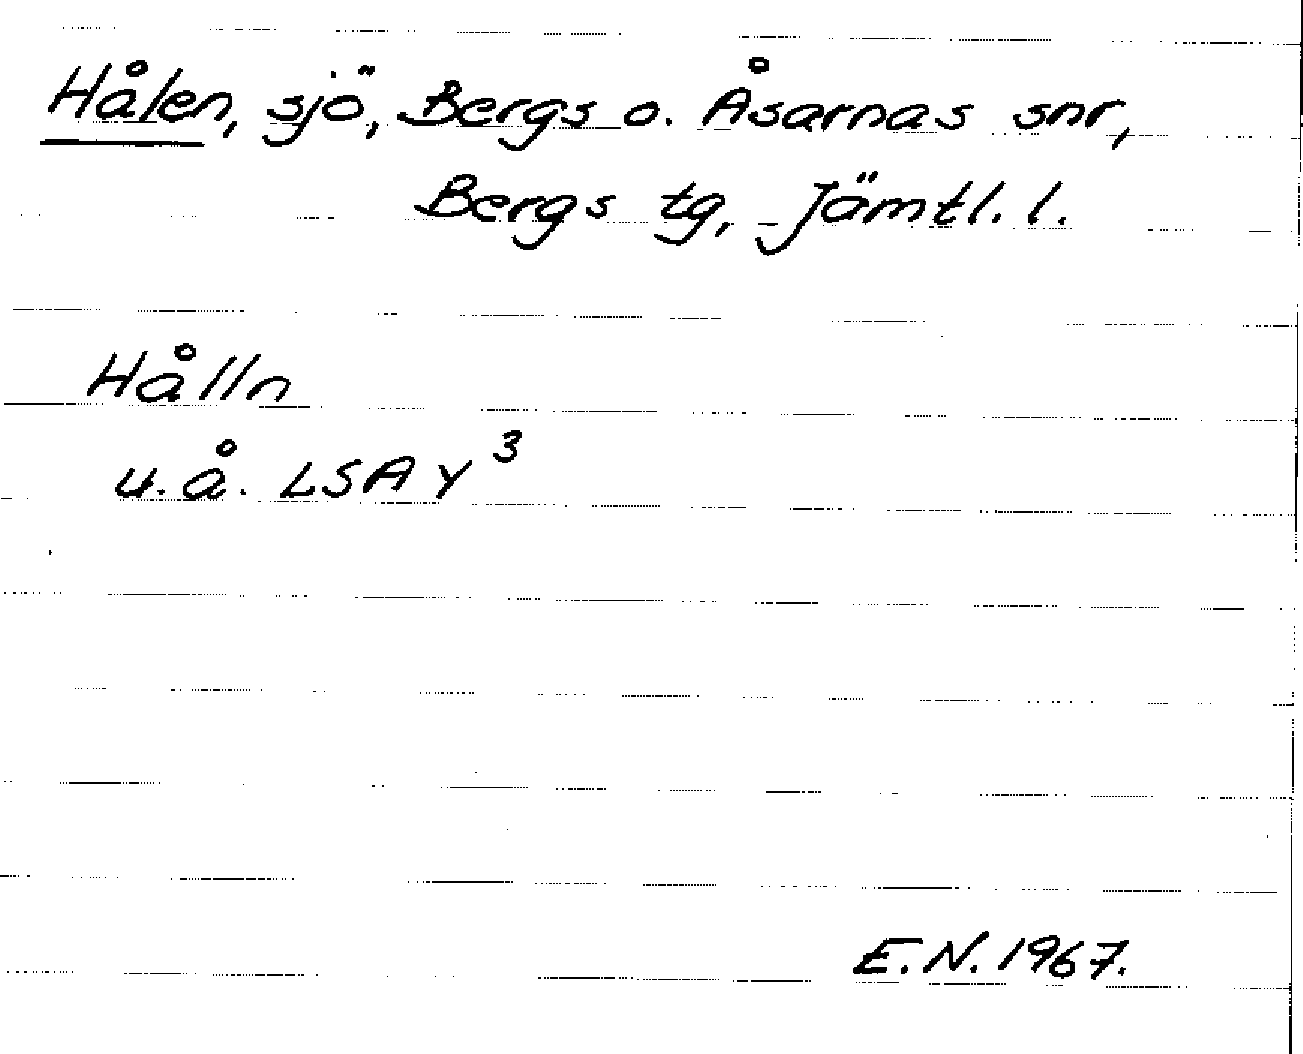 Hålen, sjö, Bergs o. Åsarnas snr,
Bergs tg, Jämtl. l.
Hålln
u.å. LSA Y³
E.N. 1967.